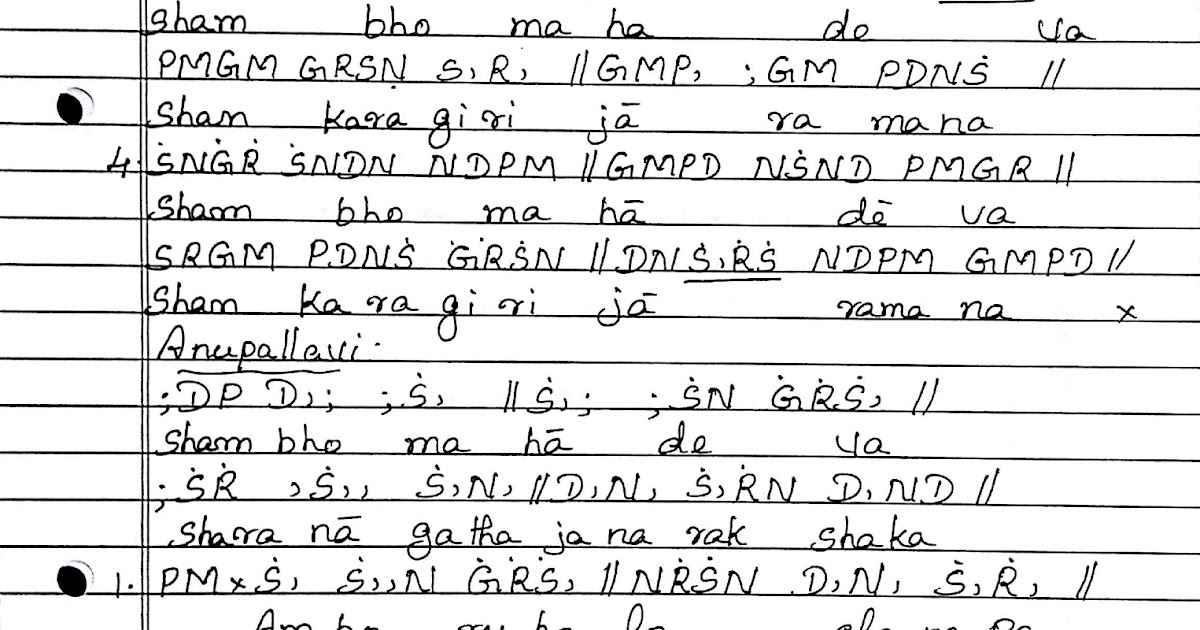 Sham bho ma ha de va
PMGM GRSṆ S, R, || GMP, ; GM PDNṠ ||
Sham kara giri jā ra mana
4. ṠNĠṘ ṠNDN NDPM || GMPD NṠND PMGR ||
Sham bho ma hā dē va
SRGM PDNṠ ĠṘṠN || DNṠ,ṘṠ NDPM GMPD ||
Sham ka ra gi ri jā rama na x
Anupallavi.
; DP D,; ; Ṡ, || Ṡ,; ; ṠN ĠṘṠ, ||
Sham bho ma hā de va
; ṠṘ ,Ṡ,, Ṡ,N, || D,N, Ṡ,ṘN D,ND ||
Shara nā gatha ja na rak shaka
1. PMxṠ, Ṡ,,N ĠṘṠ, || NṘṠN D,N, Ṡ,Ṙ, ||